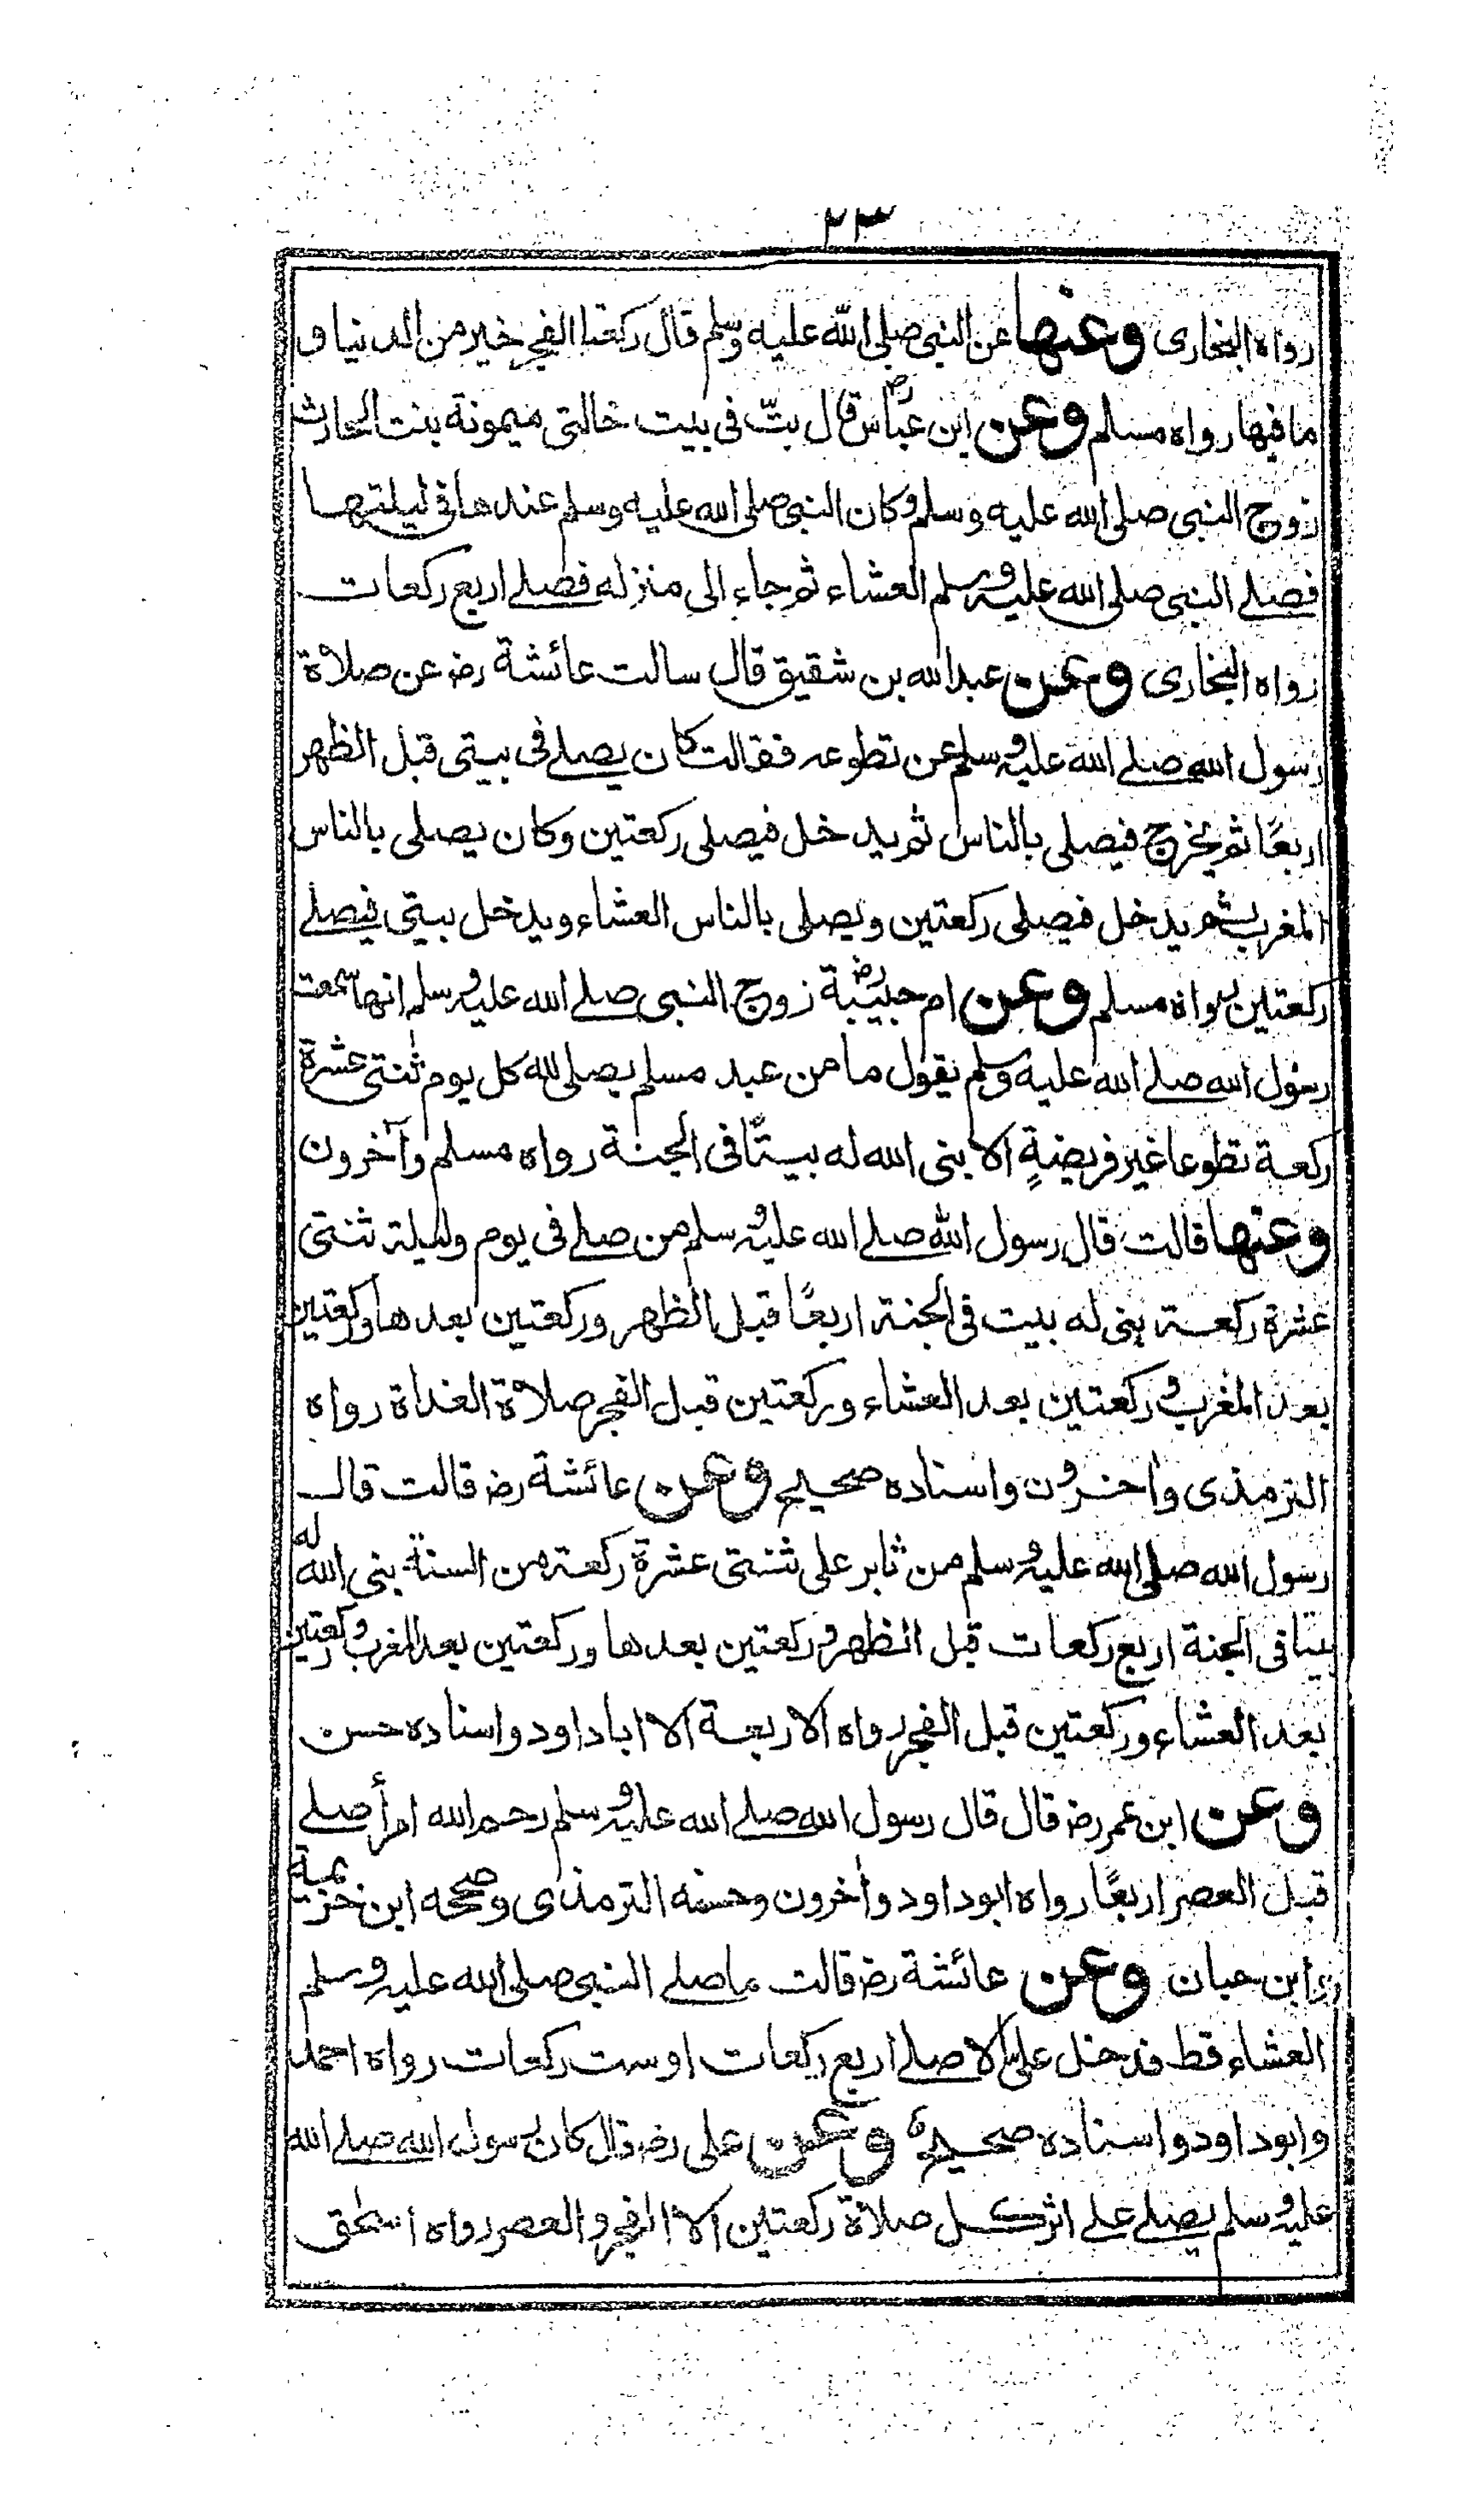 ٢٣
رواه البخارى وعنها عن النبى صلى الله عليه وسلم قال ركعتا الفجر خير من الدنيا و
ما فيها رواه مسلم وعن ابن عباس رض قال بتّ فى بيت خالتى ميمونة بنت الحارث
زوج النبى صلى الله عليه وسلم وكان النبى صلى الله عليه وسلم عندها فى ليلتها
فصلى النبى صلى الله عليه وسلم العشاء ثم جاء الى منزله فصلى اربع ركعات
رواه البخارى وعن عبدالله بن شقيق قال سالت عائشة رض عن صلاة
رسول الله صلى الله عليه وسلم عن تطوعه فقالت كان يصلى فى بيتى قبل الظهر
اربعًا ثم يخرج فيصلى بالناس ثم يدخل فيصلى ركعتين وكان يصلى بالناس
المغرب ثم يدخل فيصلى ركعتين ويصلى بالناس العشاء ويدخل بيتى فيصلى
ركعتين رواه مسلم وعن ام حبيبة رض زوج النبى صلى الله عليه وسلم انها سمعت
رسول الله صلى الله عليه وسلم يقول ما من عبد مسلم يصلى لله كل يوم ثنتى عشرة
ركعة تطوعا غير فريضةٍ الا بنى الله له بيتًا فى الجنة رواه مسلم وآخرون
وعنها قالت قال رسول الله صلى الله عليه وسلم من صلى فى يوم وليلة ثنتى
عشرة ركعة بنى له بيت فى الجنة اربعًا قبل الظهر وركعتين بعدها وركعتين
بعد المغرب وركعتين بعد العشاء وركعتين قبل الفجر صلاة الغداة رواه
الترمذى واخرون واسناده صحيح وعن عائشة رض قالت قال
رسول الله صلى الله عليه وسلم من ثابر على ثنتى عشرة ركعة من السنة بنى الله له
بيتا فى الجنة اربع ركعات قبل الظهر وركعتين بعدها وركعتين بعد المغرب وركعتين
بعد العشاء وركعتين قبل الفجر رواه الاربعة الا اباداود واسناده حسن
وعن ابن عمر رض قال قال رسول الله صلى الله عليه وسلم رحم الله امرأ صلى
قبل العصر اربعًا رواه ابوداود واخرون وحسنه الترمذى وصححه ابن خزيمة
وابن حبان وعن عائشة رض قالت ما صلى النبى صلى الله عليه وسلم
العشاء قط فدخل على الا صلى اربع ركعات او ست ركعات رواه احمد
وابوداود واسناده صحيح وعن على رض قال كان رسول الله صلى الله
عليه وسلم يصلى على اثر كل صلاة ركعتين الا الفجر والعصر رواه اسحق